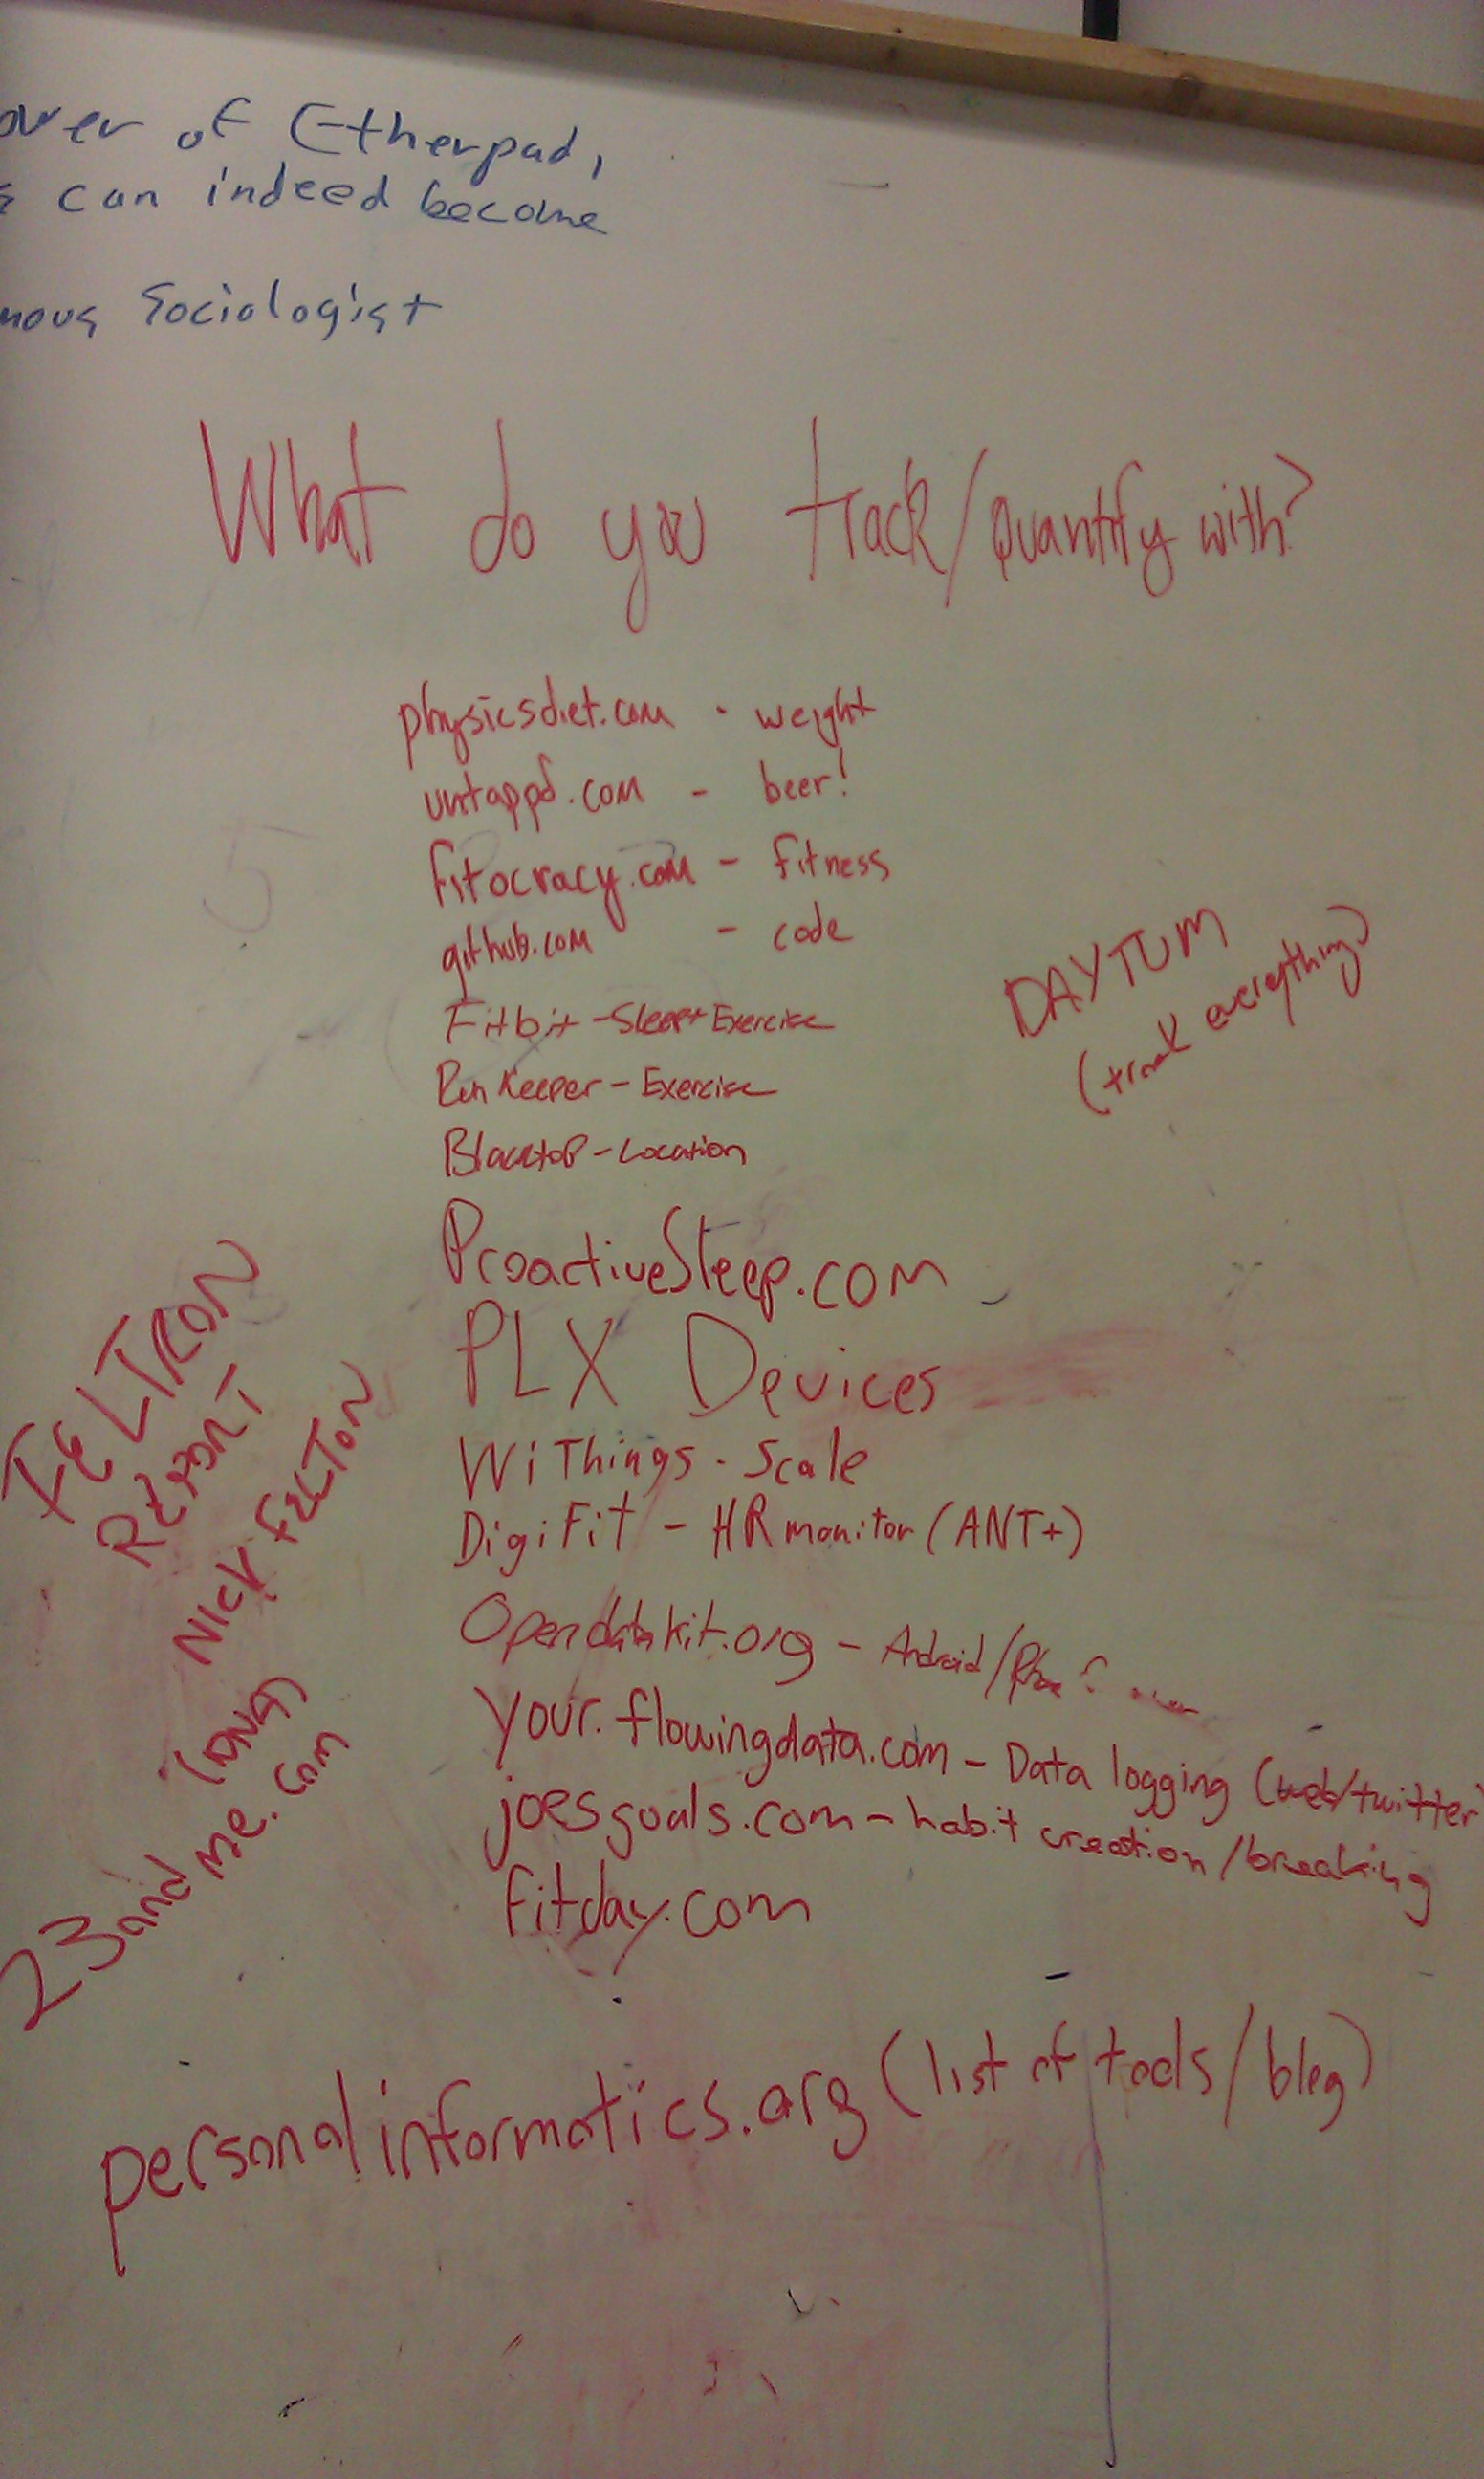 of Etherpad,
can indeed become
Sociologist
What do you track/quantify with?
physicsdiet.com - weight
untappd.com - beer!
fitocracy.com - fitness
github.com - code
Fitbit - Sleep + Exercise
RunKeeper - Exercise
Blacktop - Location
ProactiveSleep.com
PLX Devices
WiThings - Scale
DigiFit - HR monitor (ANT+)
Opendatakit.org - Android/
your.flowingdata.com - Data logging (web/twitter
joesgoals.com - habit creation/breaking
fitday.com
DAYTUM
(track everything)
FELTRON
REPORT
NICK FELTON
(DNA)
23andme.com
personalinformatics.org (list of tools/blog)